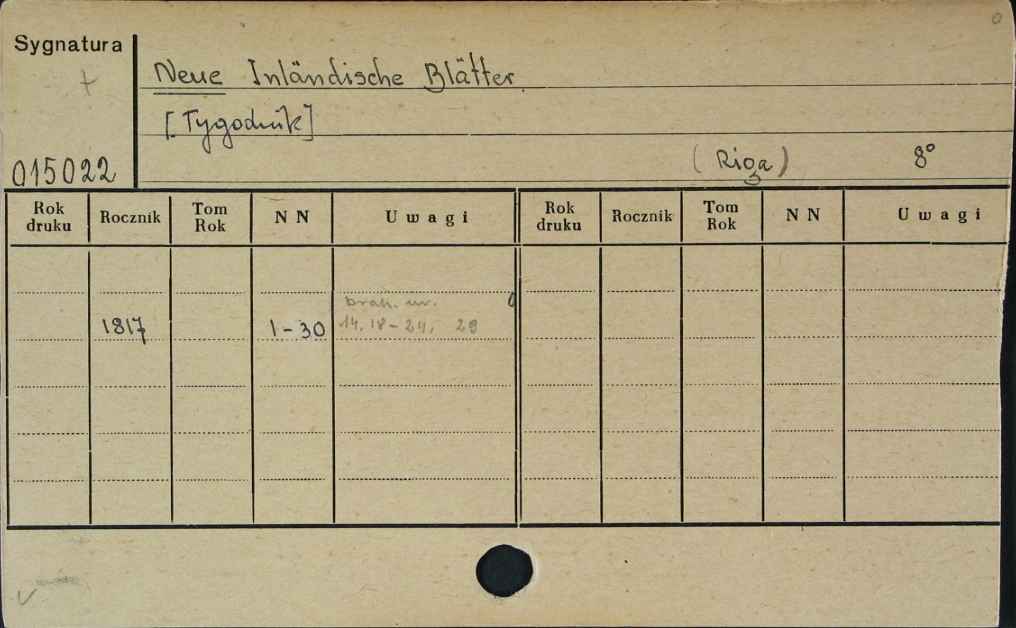 Sygnatura
Neue Inländische Blätter
[Tygodnik]
015022
(Riga) 8°
Rok druku Rocznik Tom Rok N N Uwagi Rok druku Rocznik Tom Rok N N Uwagi
brak. nr.
1817 1-30 14, 18-24, 28